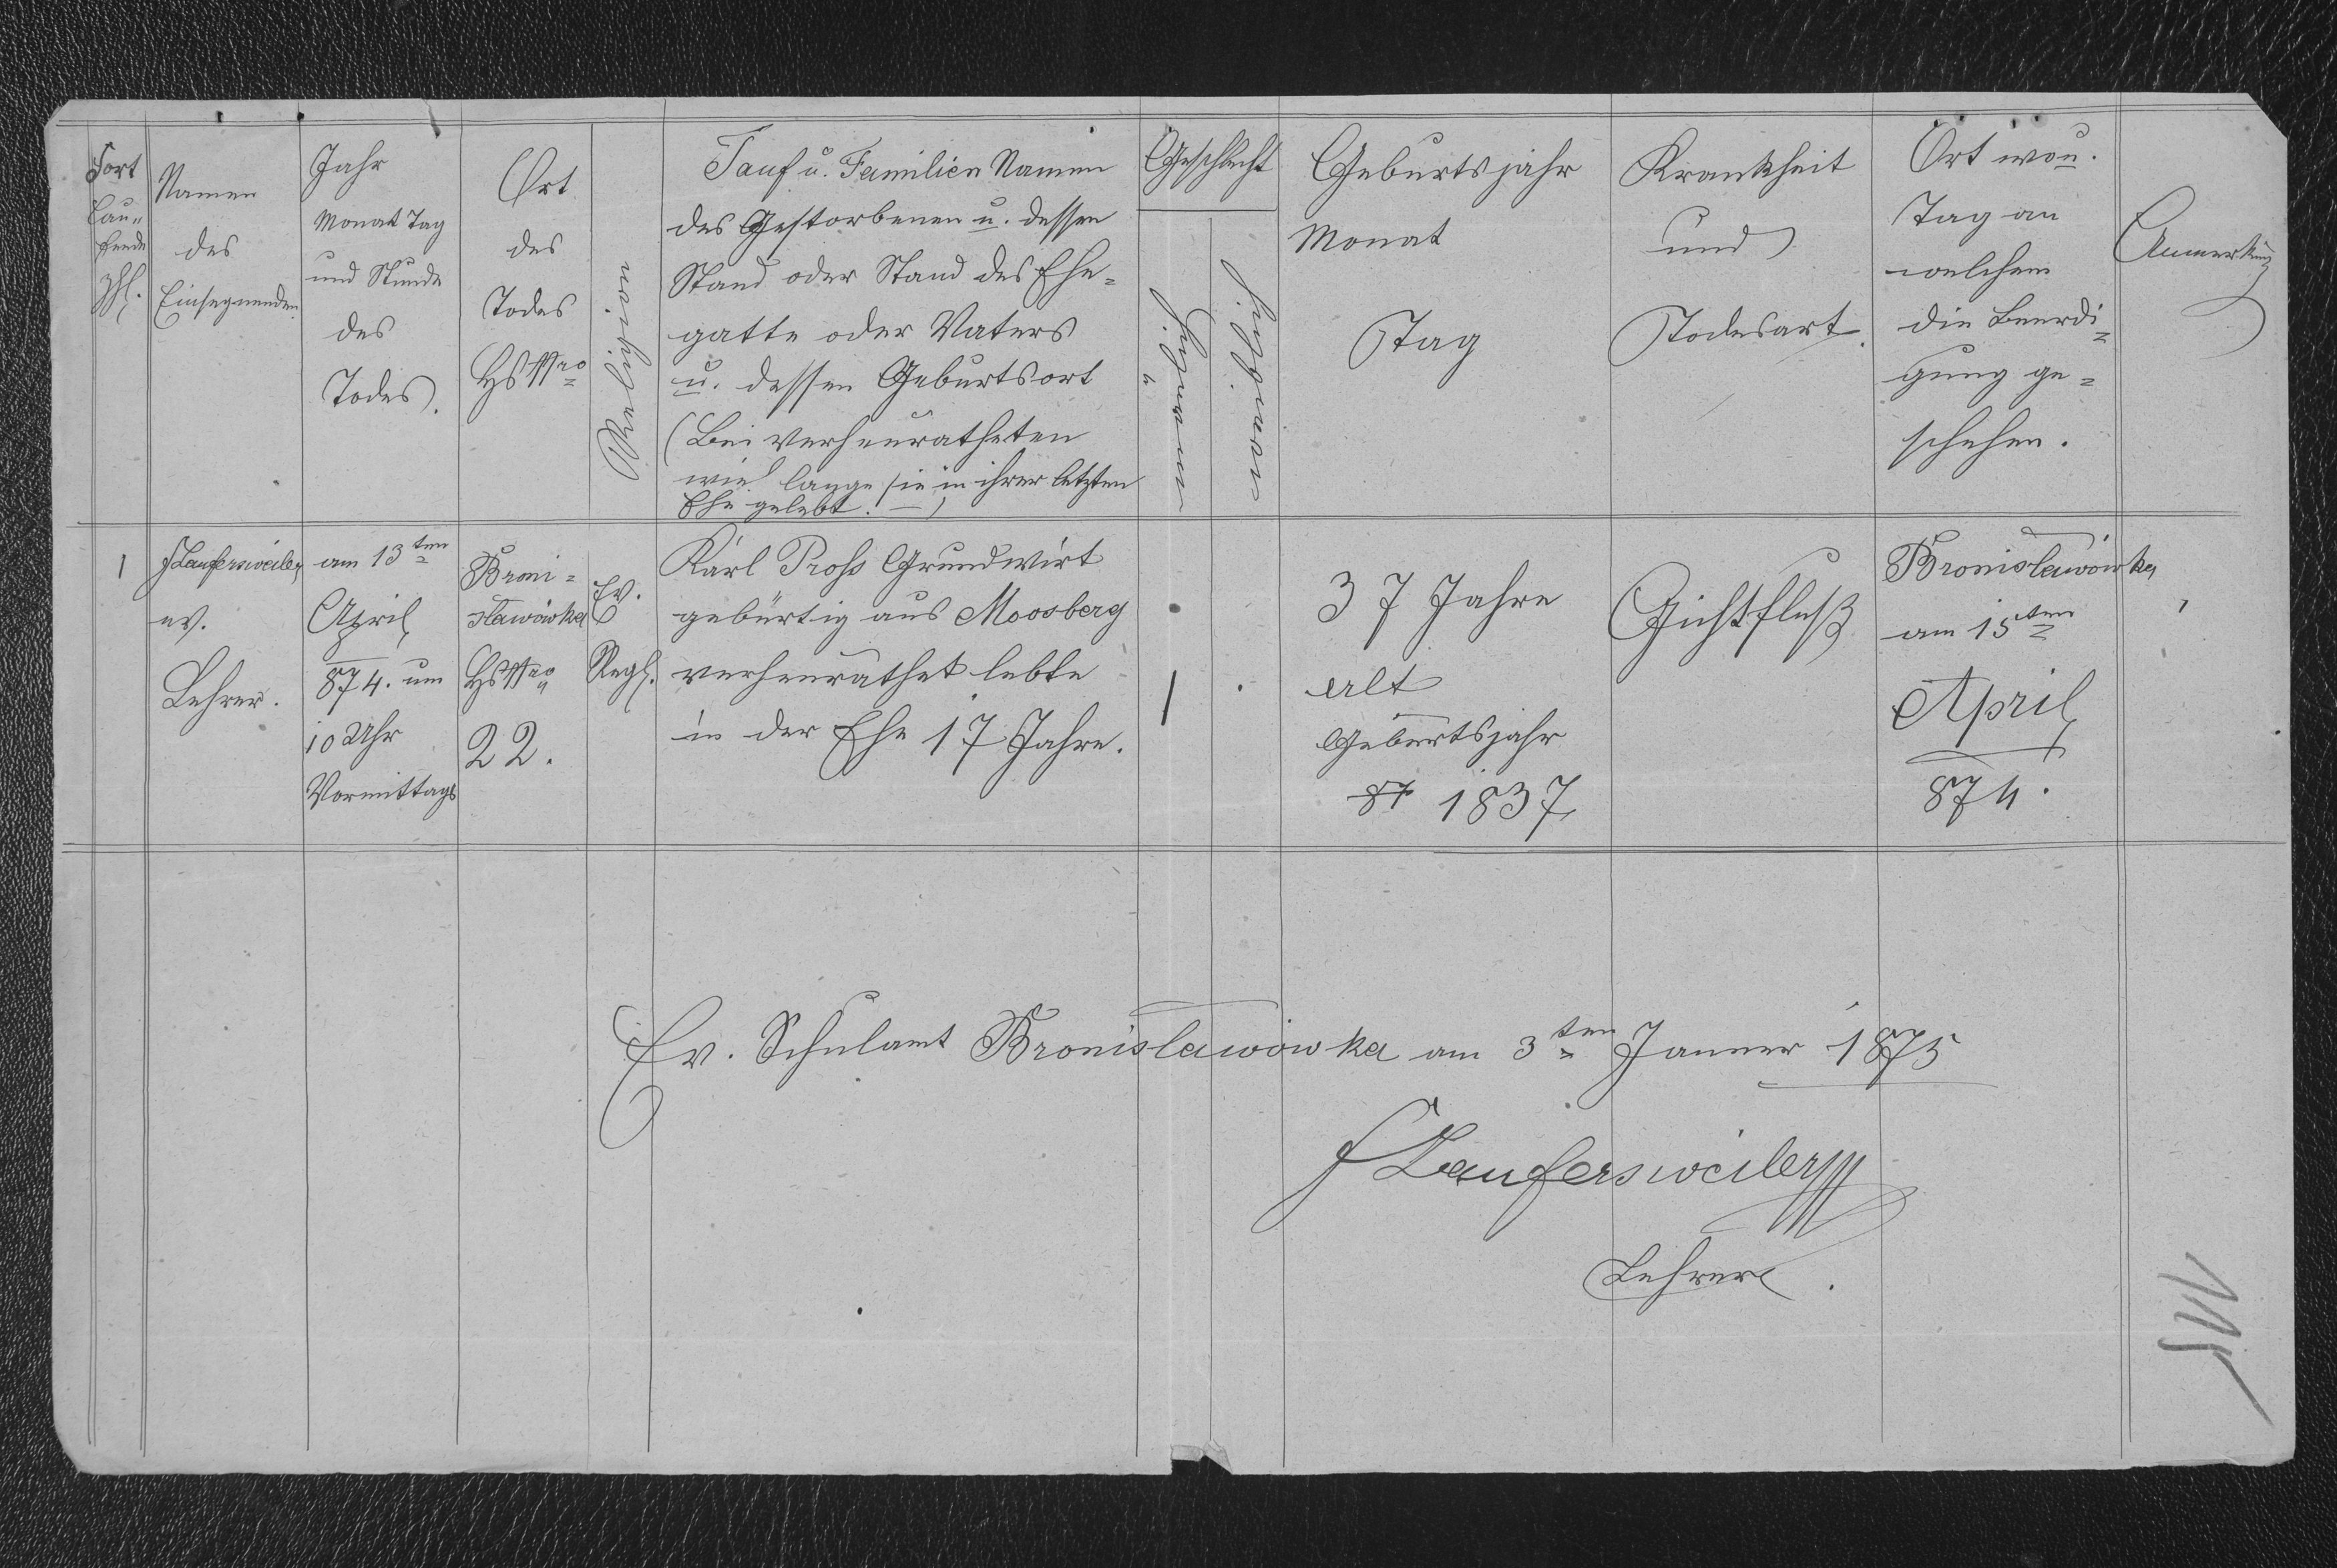 Fort
lau-
fende
Zhl.
Namen
des
Einsegnenden
Jahr
Monat Tag
und Stunde
des
Todes.
Ort
des
Todes
Hs Nro
Religion
Tauf u. Familien Namen
des Gestorbenen u. dessen
Stand oder Stand des Ehe-
gatte oder Vaters
u. dessen Geburtsort
(Bei verheuratheten
wie lange sie in ihrer letzten
Ehe gelebt.)
Geschlecht
Geburtsjahr
Monat
Tag
Krankheit
und
Todesart.
Ort wo u.
Tag an
welchem
die Beerdi-
gung ge-
schehen.
Anmerkung
1
F Laufersweiler
ev.
Lehrer.
am 13ten
April
874. um
10 Uhr
Vormittags
Broni-
sławówka
Hs Nro
22.
Ev.
Regl.
Karl Pross Grundwirt
gebürtig aus Moosberg
verheurathet lebte
in der Ehe 17 Jahre.
1
37 Jahre
alt
Geburtsjahr
87 1837
Gichtfluß
Bronislawówka
am 15ten
April
874.
Ev. Schulamt Bronislawówka am 3ten Janner 1875
F Laufersweiler
Lehrer.